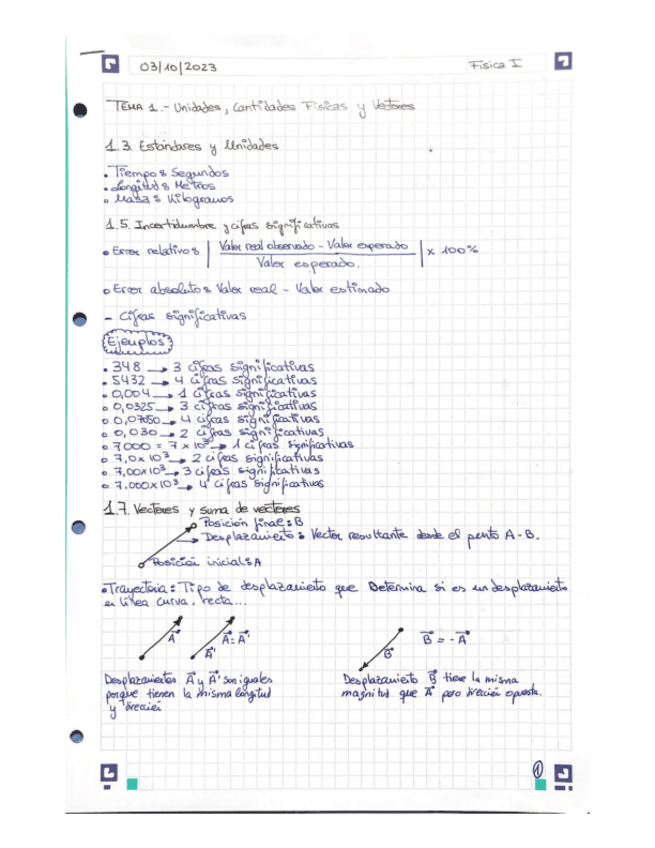 03/10/2023
Física I
TEMA 1.- Unidades, Cantidades Físicas y Vectores
1.3. Estándares y Unidades
• Tiempo: Segundos
• Longitud: Metros
• Masa: Kilogramos
1.5. Incertidumbre y cifras significativas
• Error relativo: | Valor real observado - Valor esperado / Valor esperado. | x 100%
• Error absoluto: Valor real - Valor estimado
- Cifras significativas
Ejemplos
• 348 → 3 cifras significativas
• 5432 → 4 cifras significativas
• 0,004 → 1 cifras significativas
• 0,0325 → 3 cifras significativas
• → 4 cifras significativas
• 0,030 → 2 cifras significativas
• 7000 = 7 x 10³ → 1 cifras significativas
• 7,0 x 10³ → 2 cifras significativas
• 7,00x10³ → 3 cifras significativas
• 7.000x10³ → 4 cifras significativas
1.7. Vectores y suma de vectores
Posición final: B
→ Desplazamiento: Vector resultante desde el punto A - B.
Posición inicial: A
• Trayectoria: Tipo de desplazamiento que Determina si es un desplazamiento
en línea curva, recta...
A⃗
A⃗ = A⃗'
A⃗'
B⃗ = - A⃗
B⃗
Desplazamientos A⃗ y A⃗' son iguales
porque tienen la misma longitud
y dirección
Desplazamiento B⃗ tiene la misma
magnitud que A⃗ pero dirección opuesta.
1